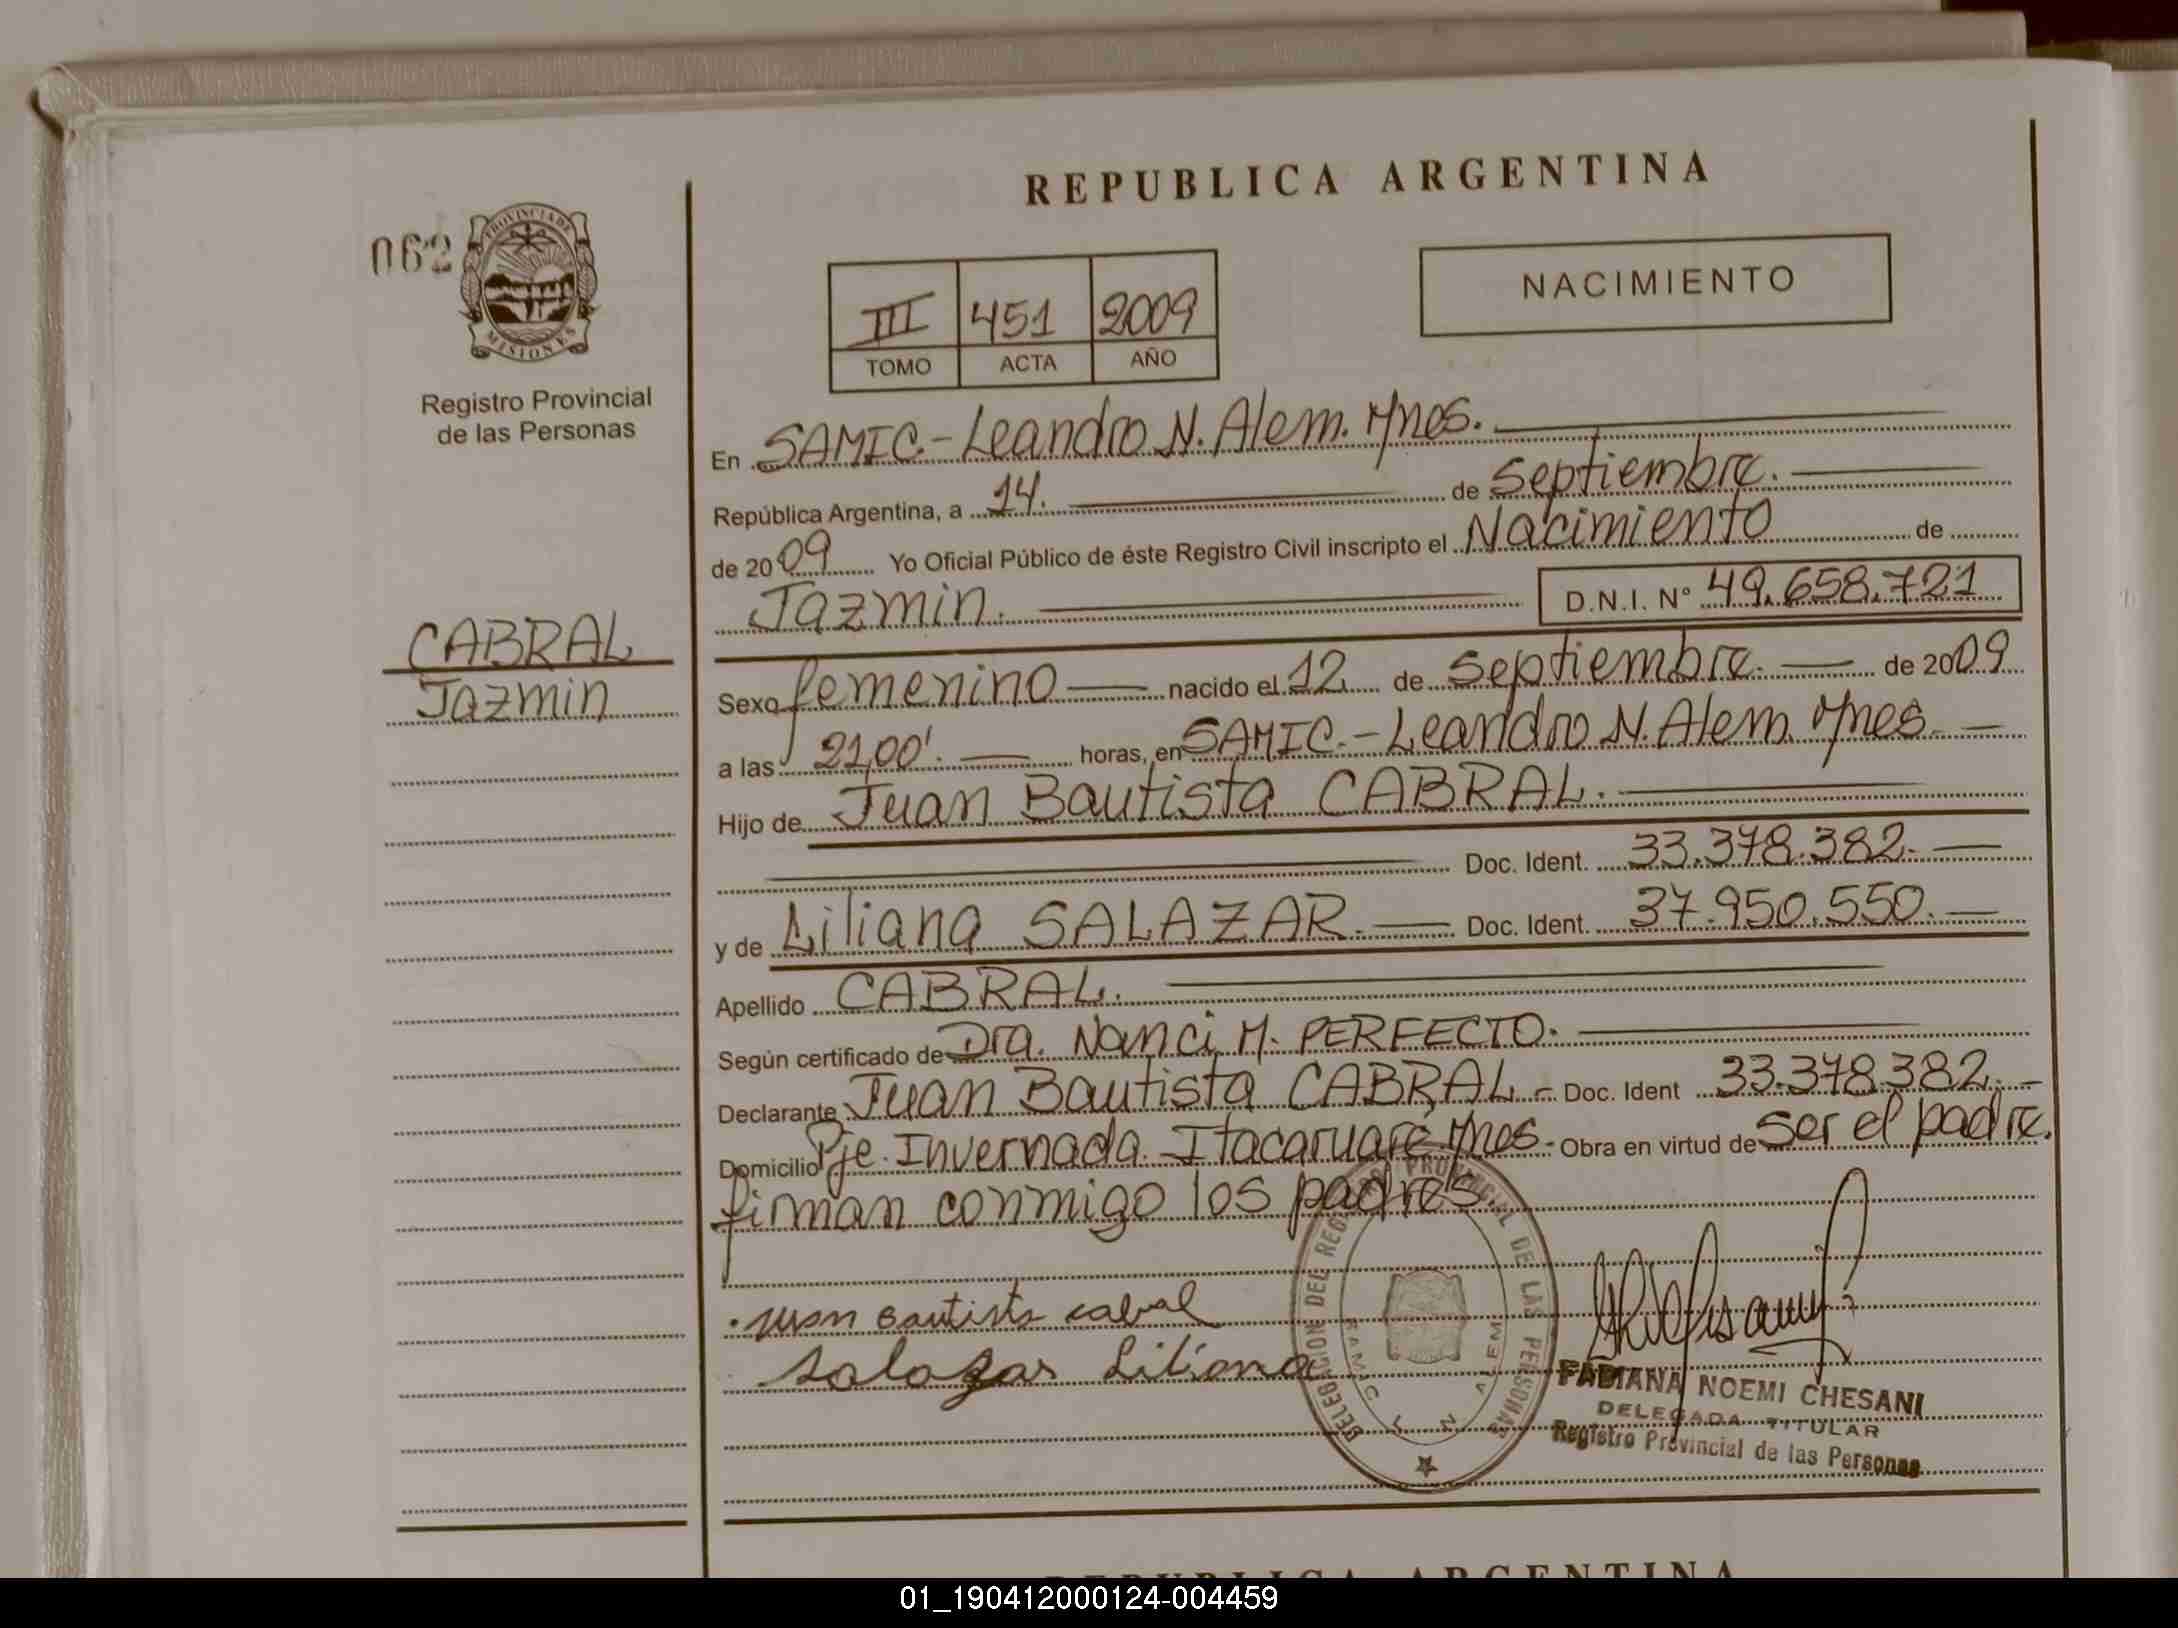 REPUBLICA ARGENTINA
062
PROVINCIA DE
MISIONES
Registro Provincial
de las Personas
III 451 2009
TOMO ACTA AÑO
NACIMIENTO
En SAMIC.- Leandro N. Alem. Mnes.
República Argentina, a 14. de Septiembre.
de 2009 Yo Oficial Público de éste Registro Civil inscripto el Nacimiento de
Jazmin. D.N.I. N° 49.658.721
CABRAL
Jazmin
Sexo femenino nacido el 12 de Septiembre. de 2009
a las 21,00'. horas, en SAMIC.- Leandro N. Alem. Mnes.
Hijo de Juan Bautista CABRAL.
Doc. Ident. 33.378.382.
y de Liliana SALAZAR. Doc. Ident. 37.950.550.
Apellido CABRAL.
Según certificado de Dra. Nanci M. PERFECTO.
Declarante Juan Bautista CABRAL.- Doc. Ident 33.378.382.
Domicilio Pje. Invernada. Itacaruaré Mnes. Obra en virtud de ser el padre.
firman conmigo los padres
Juan Bautista Cabral
Salazar Liliana
DELEGACION DEL REGISTRO PROVINCIAL DE LAS PERSONAS
SAMIC L N ALEM
FABIANA NOEMI CHESANI
DELEGADA TITULAR
Registro Provincial de las Personas
REPUBLICA ARGENTINA
01_190412000124-004459